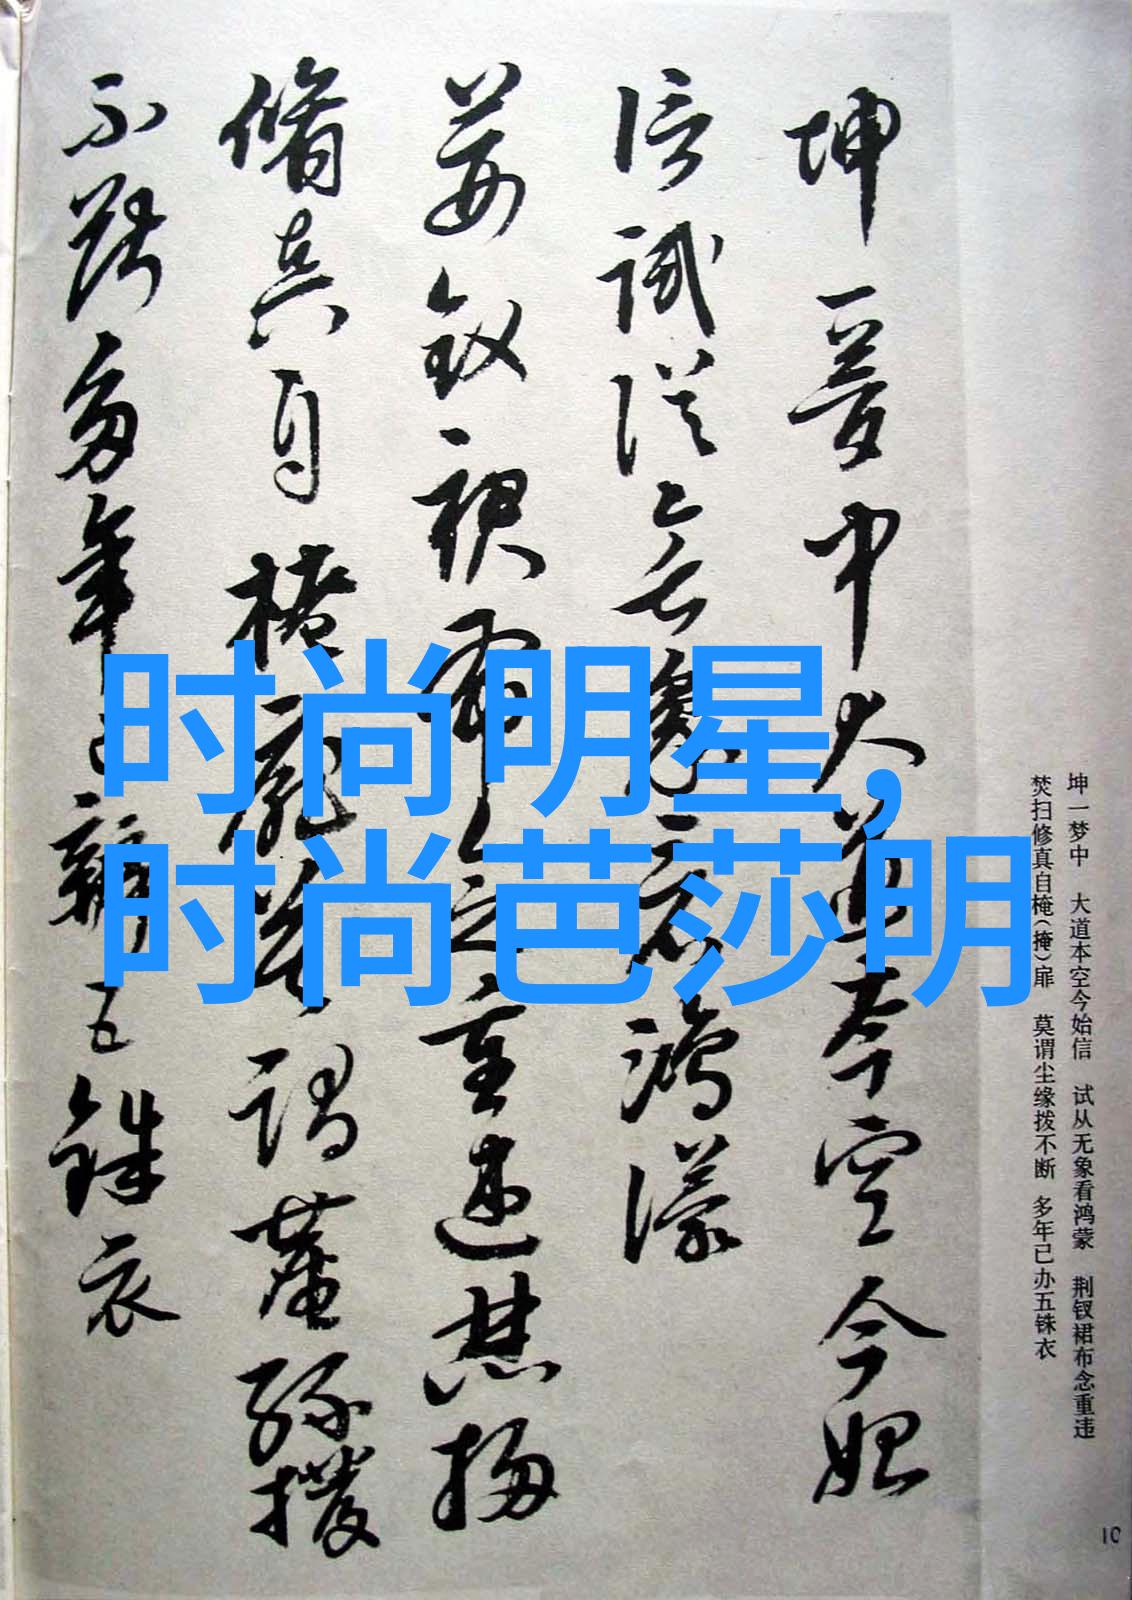 坤一梦中大道本空今始
信试从无象看鸿蒙
荆钗裙布念重违焚扫
修真自掩扉莫谓尘缘拨
不断多年已办五铢衣
时尚明星,
时尚芭莎明
坤一梦中 大道本空今始信 试从无象看鸿蒙 荆钗裙布念重违
焚扫修真自掩(掩)扉 莫谓尘缘拨不断 多年已办五铢衣
10